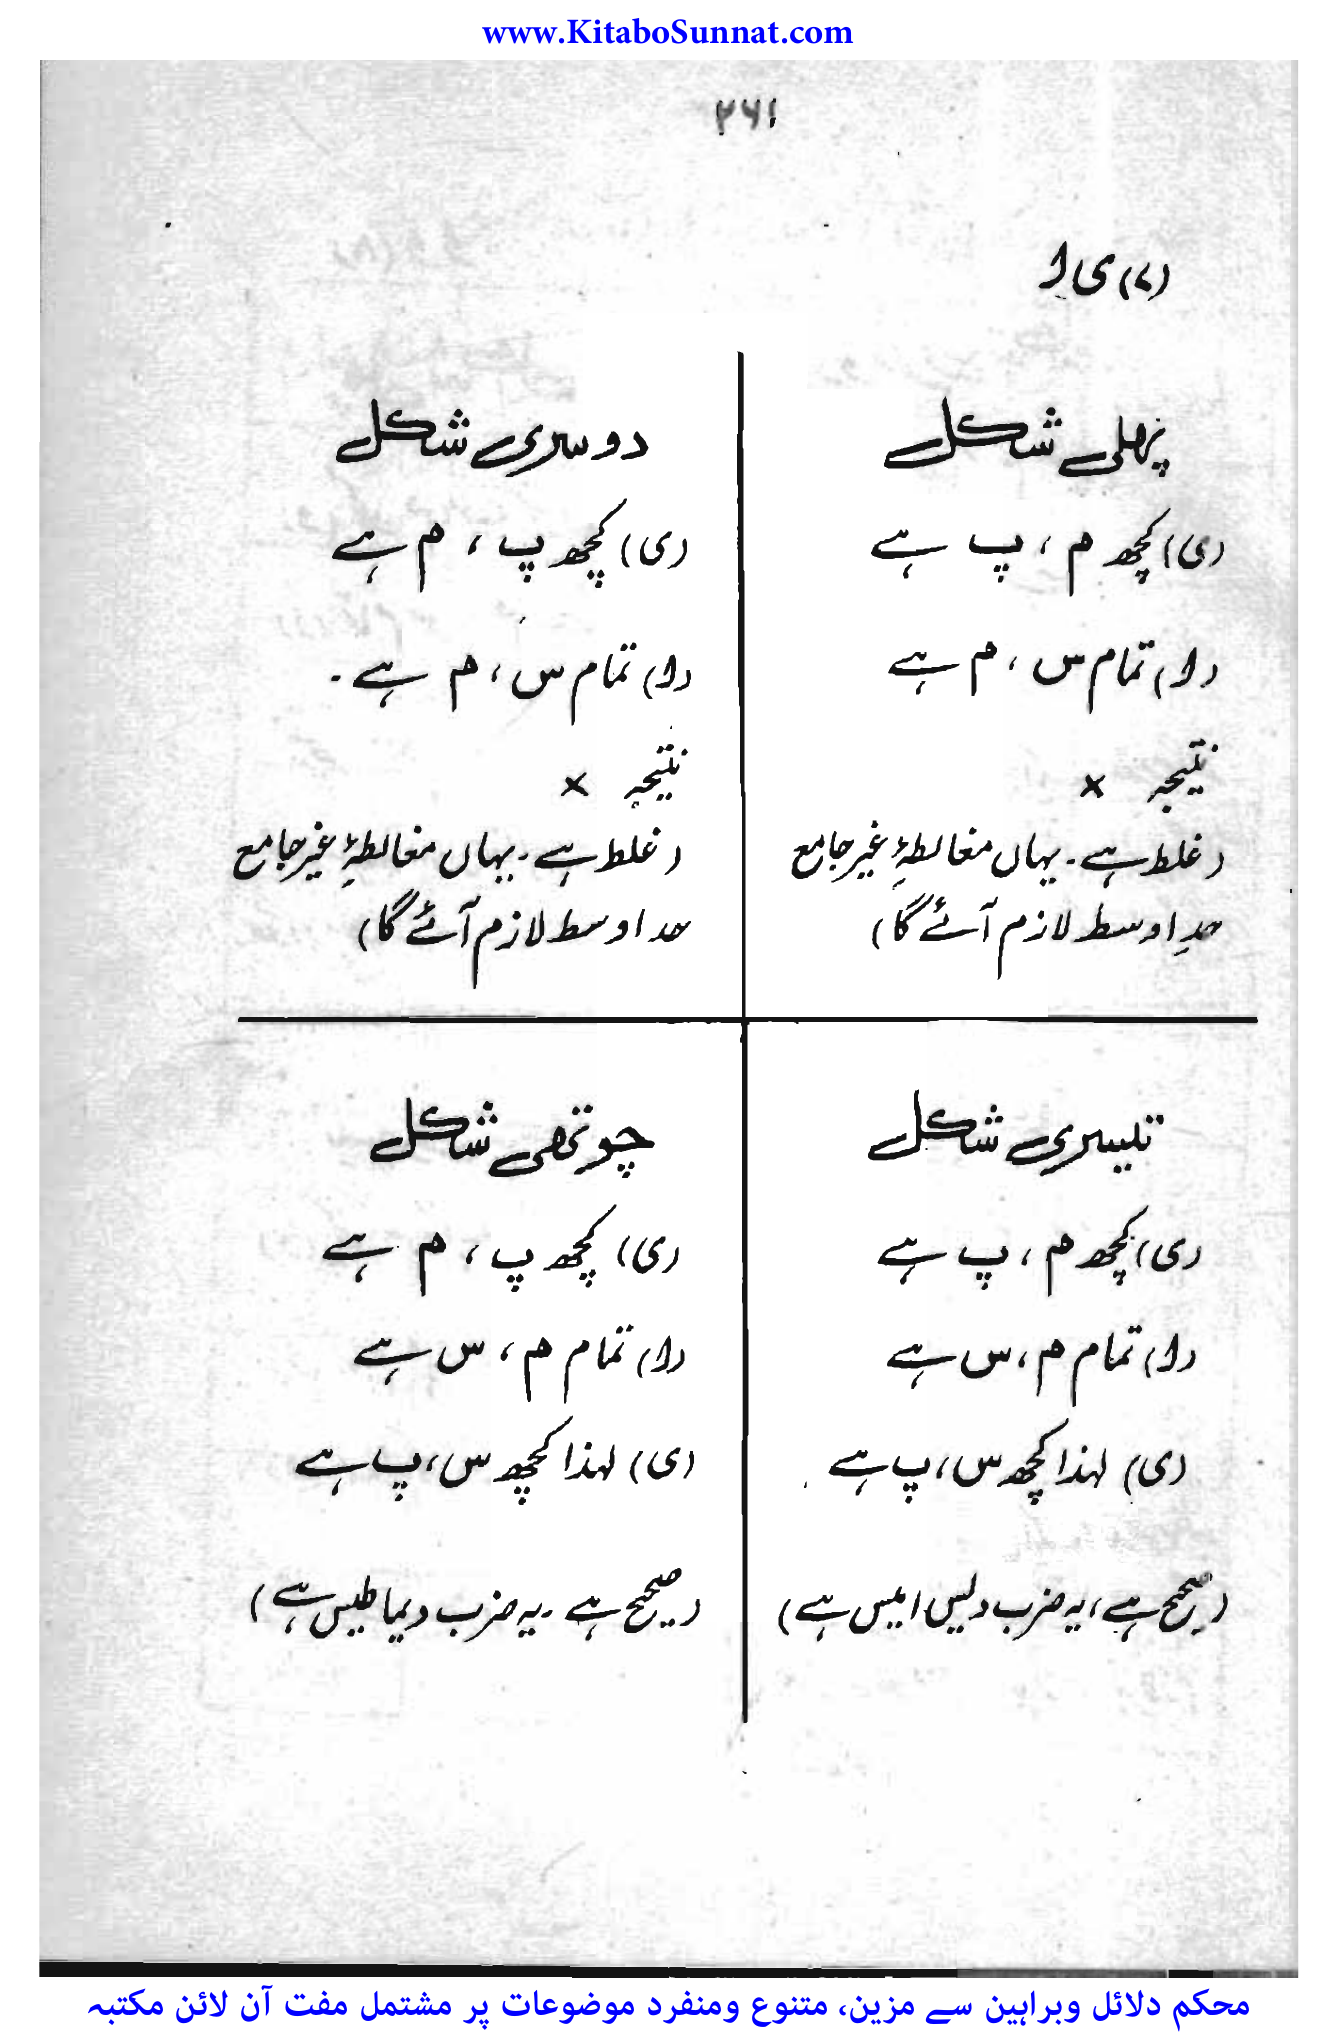 www.KitaboSunnat.com
۲۶۱
(۷) ی ا
پہلی شکل
(ی) کچھ م، پ ہے
(ا) تمام س، م ہے
نتیجہ ×
(غلط ہے۔ یہاں مغالطۂ غیر جامع
حدِ اوسط لازم آئے گا)
دوسری شکل
(ی) کچھ پ، م ہے
(ا) تمام س، م ہے۔
نتیجہ ×
(غلط ہے۔ یہاں مغالطۂ غیر جامع
حد اوسط لازم آئے گا)
تیسری شکل
(ی) کچھ م، پ ہے
(ا) تمام م، س ہے
(ی) لہذا کچھ س، پ ہے
(صحیح ہے، یہ ضرب دلیس امیس ہے)
چوتھی شکل
(ی) کچھ پ، م ہے
(ا) تمام م، س ہے
(ی) لہذا کچھ س، پ ہے
(صحیح ہے۔ یہ ضرب دیماطیس ہے)
محکم دلائل وبراہین سے مزین، متنوع ومنفرد موضوعات پر مشتمل مفت آن لائن مکتبہ